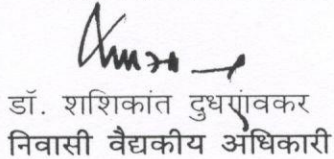 डॉ. शशिकांत दुधगांवकर
निवासी वैद्यकीय अधिकारी